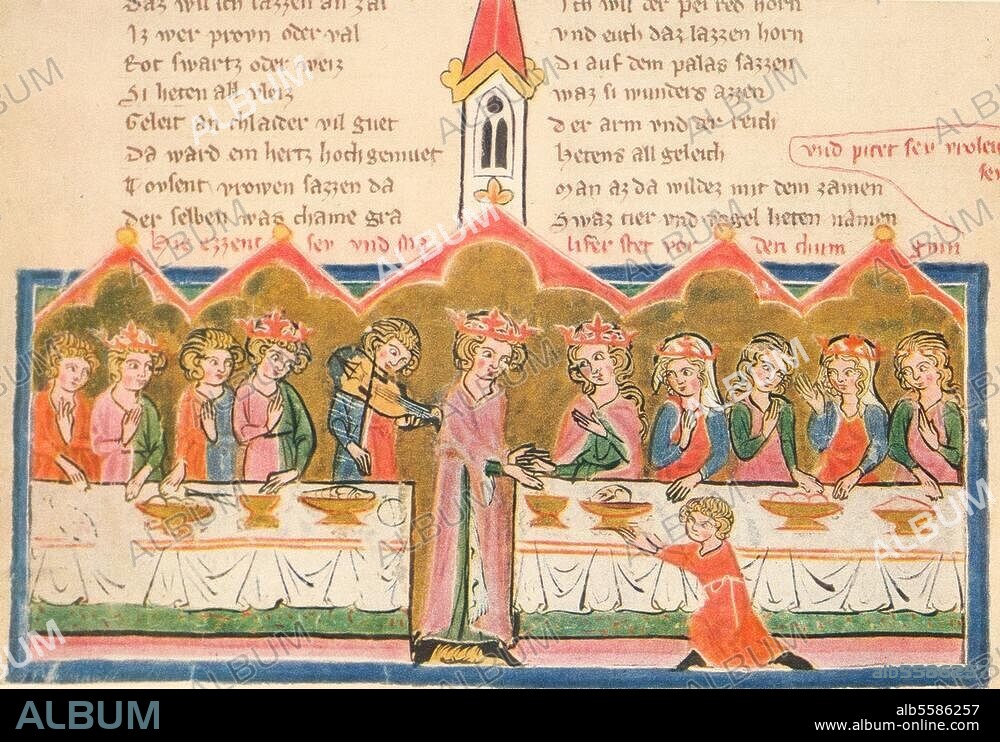 Daz wil ich lazzen an zal
Iz wer provn oder val
Rot swartz oder weiz
Si heten all vleiz
Geleit an chlaider vil guet
Da ward ein hertz hochgemuet
Tovsent vrowen sazzen da
Der selben was chaine gra
Ich wil der pei red horn
Vnd euch daz lazzen horn
Di auf dem palas sazzen
Waz si wunders azzen
Der arm vnd der reich
Hetens all geleich
Man az da wildez mit dem zamen
Swaz tier vnd vogel heten namen
vnd pitet sev vroleich
sey
Hie ezzent sev vnd
liser stet vor den chuniginn
ALBUM
alb5586257
www.album-online.com